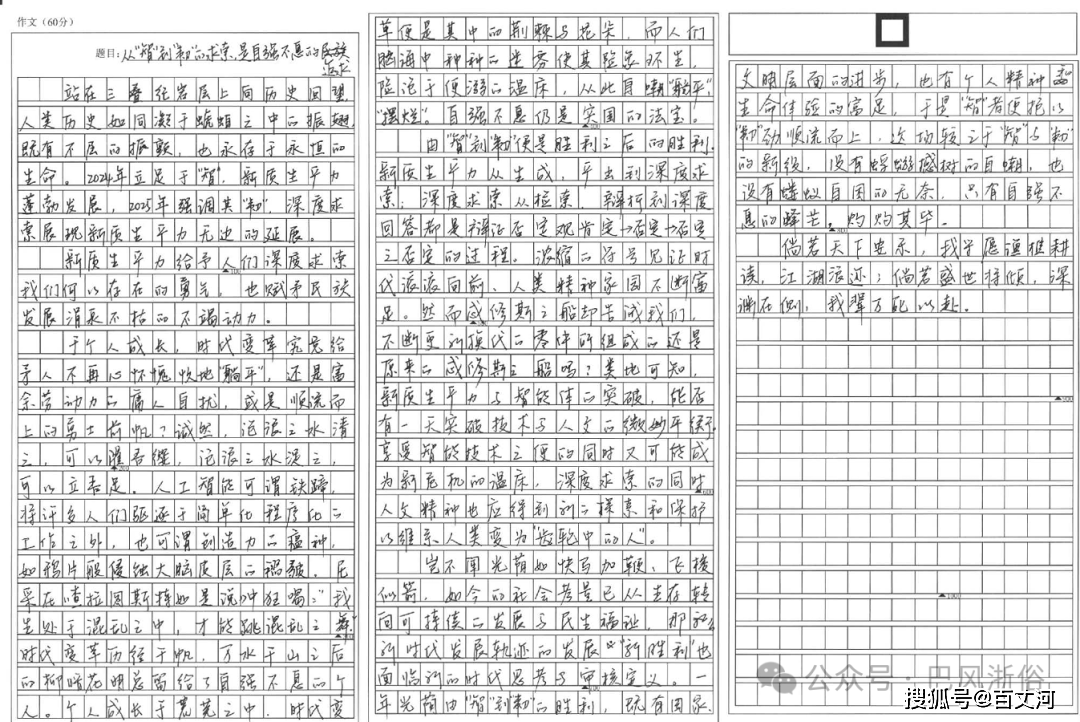 作文（60分）
题目：从“智”到“韧”的求索，是自强不息的民族
追求
站在三叠纪岩层上向历史回望，
人类历史如同凝于琥珀之中的振翅，
既有不屈的振颤，也永存于永恒的
生命。2024年立足于“智”，新质生平力
蓬勃发展，2025年强调其“韧”，深度求
索展现新质生平力无边的延展。
新质生平力给予人们深度求索
我们何以存在的勇气，也赋予民族
发展涓泉不枯的不竭动力。
于个人成长，时代变革究竟给
予人不再心怀愧怍地“躺平”，还是富
余劳动力的庸人自扰，或是顺流而
上的勇士前帆？诚然，沧浪之水清
之，可以濯吾缨，沧浪之水浊之，
可以立吾足。人工智能可谓铁蹄，
将许多人们驱逐于简单化程序化的
工作之外，也可谓创造力的瘟神，
如鸦片般侵蚀大脑皮层的褶皱。尼
采在《查拉图斯特如是说》中狂唱：“我
生处于混乱之中，才能跳混乱之舞”
时代变革历经千帆，万水千山之后
的柳暗花明总留给了自强不息的个
人。个人成长于荒芜之中，时代变
革便是其中的荆棘与花朵，而人们
脑海中种种的坐旁使其险象环生，
险沦于便溺的温床，从此自嘲“躺平”
“摆烂”。自强不息仍是突围的法宝。
由“智”到“韧”便是胜利之后的胜利。
新质生平力从生成，平出到深度求
索；深度求索从检索，辩析到深度
回答都是辩证否定观肯定→否定→否定
之否定的过程。浓缩的符号见证时
代滚滚向前，人类精神家园不断富
足。然而忒修斯之船却告诫我们，
不断更新换代的零件所组成的还是
原来的忒修斯之船吗？类地可知，
新质生平力与智能体的突破，能否
有一天突破技术与人文的微妙平衡。
享受智能技术之便的同时又可能成
为新危机的温床，深度求索的同时
人文精神也应得到新的探索和保护
以维系人类变为“齿轮中的人”。
岂不闻光荫如快马加鞭，飞梭
似箭，如今的社会考量已从生存转
向可持续的发展与民生福祉，那么
新时代发展轨迹的发展“新胜利”也
面临新的时代思考与审核定义。一
年光荫由“智”到“韧”的胜利，既有国家、
文明层面的进步，也有个人精神
生命体强的富足，于是“智”者便挖以
“韧”劲顺流而上，这场较之于“智”与“韧”
的新线，没有蜉蝣撼树的自嘲，也
没有蝼蚁自困的无奈，只有自强不
息的锋芒，灼灼其华。
倘若天下安乐，我平愿渔樵耕
读，江湖浪迹；倘若盛世将倾，深
渊在侧，我辈万死以赴。
公众号·巴风浙俗
搜狐号@百丈河